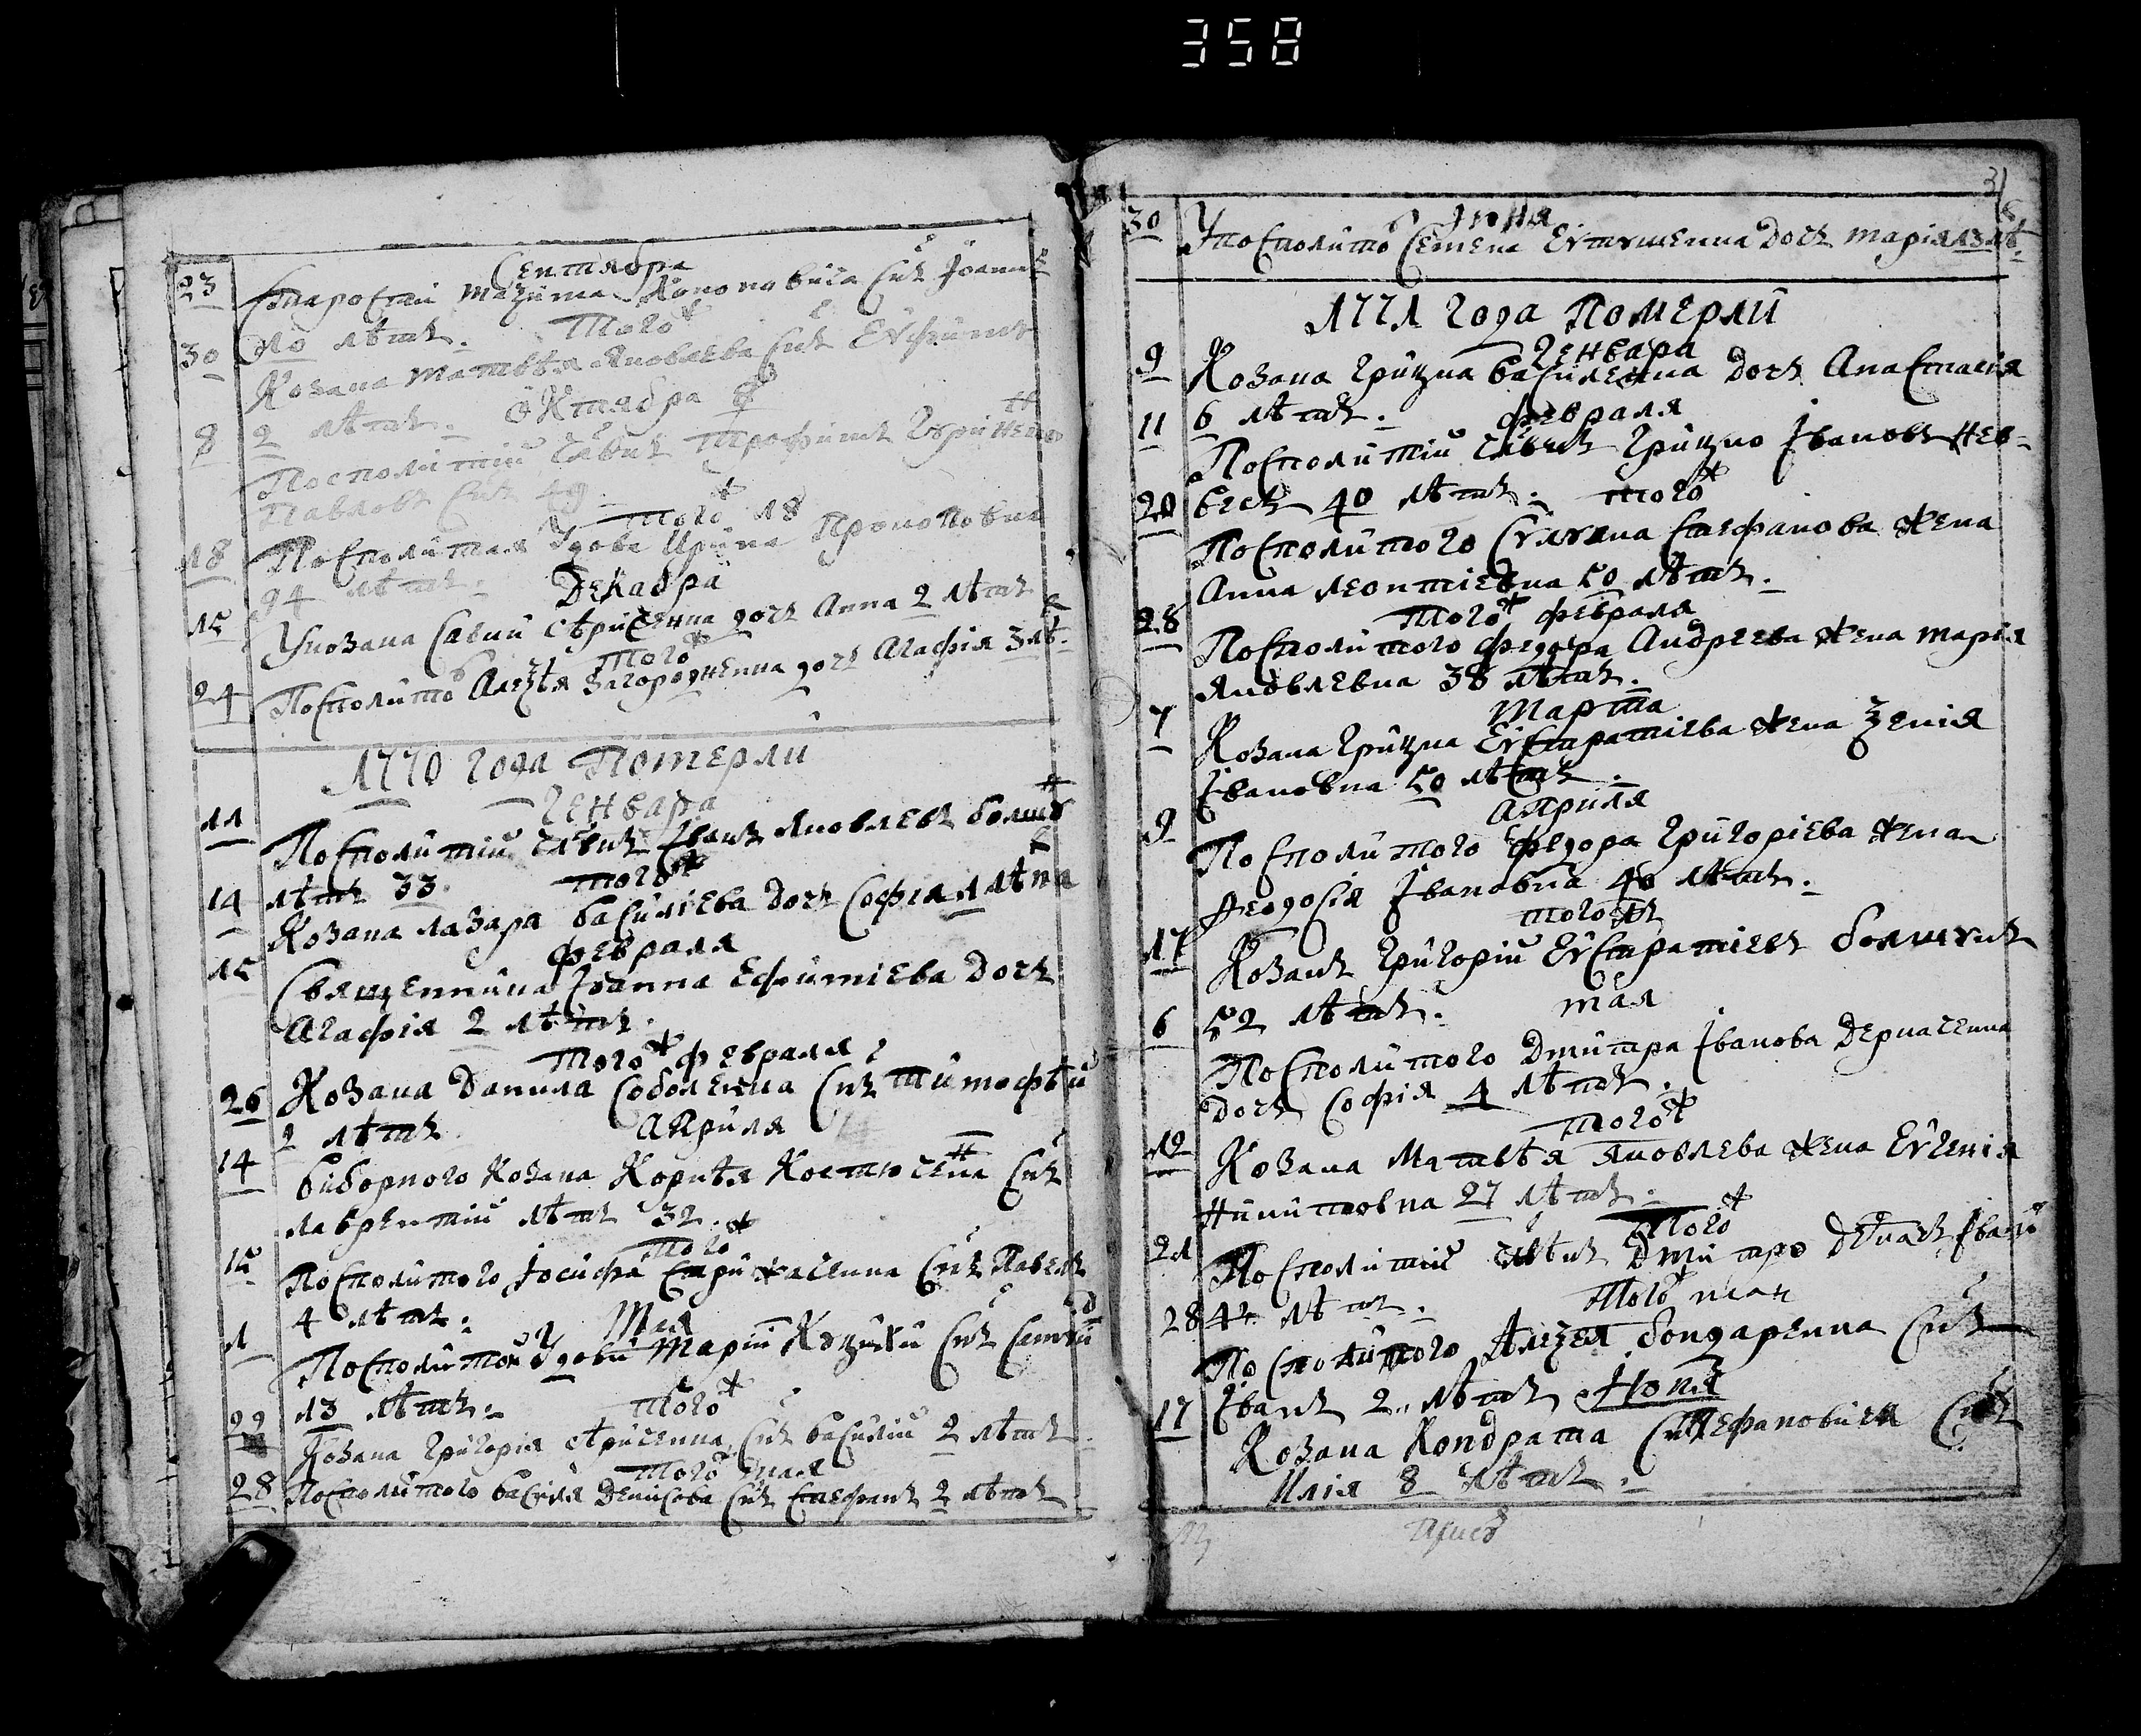 358
Сентября
23 Старости Мазима Кононовича снъ Іоаннъ
10 лѣтъ. Того ж
30 Козака Матвѣя Яковлева снъ Евфимъ
2 лѣтъ. Октября
8 Посполитій члвкъ Трофимъ
Павловъ снъ 49.
Того ж 18
18 Посполитая удова Ирина Прокоповна
94 лѣтъ. Декабря
15 У козака Савки Сѣриченка дочь Анна 2 лѣтъ
Того ж
24 Посполито Алезѣя Загородненка дочь Агафія 3 лѣ.
1770 года Померли
Генваря
11 Посполитій члвкъ Іванъ Яковлевъ
лѣтъ 33. Того ж
14 Козака Лазара Василіева дочь Софія 1 лѣта
Февраля
15 Священника Іоанна Ефиміева дочъ
Агафія 2 лѣтъ.
Того ж Февраля
26 Козака Данила Соболенка снъ Тимофѣй
2 лѣтъ Априля
14 Виборного козака Корнѣя Костюченка снъ
Лаврентій лѣтъ 32.
Того ж
15 Посполитого Іосифа Стрижаченка снъ Павелъ
4 лѣтъ. Мая
1 Посполитой удови Маріи снъ
13 лѣтъ. Того ж
22 Козака Григорія Сѣриченка снъ Василій 2 лѣтъ.
Того Мая
28 Посполитого Василя Денисова снъ Стефанъ 2 лѣтъ
31
Іюня
30 У посполито Семена Евтушенка дочь Марія 13 лѣ.
1771 года Померли
Генвара
9 Козака Грицка Василенка дочъ Анастасія
6 лѣтъ. Февраля
11 Посполитій члвкъ Грицко Івановъ
40 лѣтъ. Того ж
20 Посполитого Стефанова жена
Анна Леонтіевна 50 лѣтъ.
Того ж Февраля
28 Посполитого Федора Андреева жена Марія
Яковлевна 38 лѣтъ.
Марта
7 Козака Грицка Евстратиева жена Зенія
Івановна 50 лѣтъ.
Априля
9 Посполитого Федора Григоріева жена
Феодосія Івановна 40 лѣтъ.
Того ж
17 Козакъ Григорій Евстратіевъ
52 лѣтъ. Мая
6 Посполитого Дмитра Іванова Деркаченка
дочъ Софія 4 лѣтъ.
Того ж
12 Козака Матвѣя Яковлева жена Евгенія
Никитовна 27 лѣтъ.
Того ж
21 Посполитій члвкъ Дмитро
44 лѣтъ. Того ж мая
28 Посполитого Алезея Бондаренка снъ
Іванъ 2 лѣтъ Іюня
17 Козака Кондрата Стефановича снъ
Илія 8 лѣтъ.